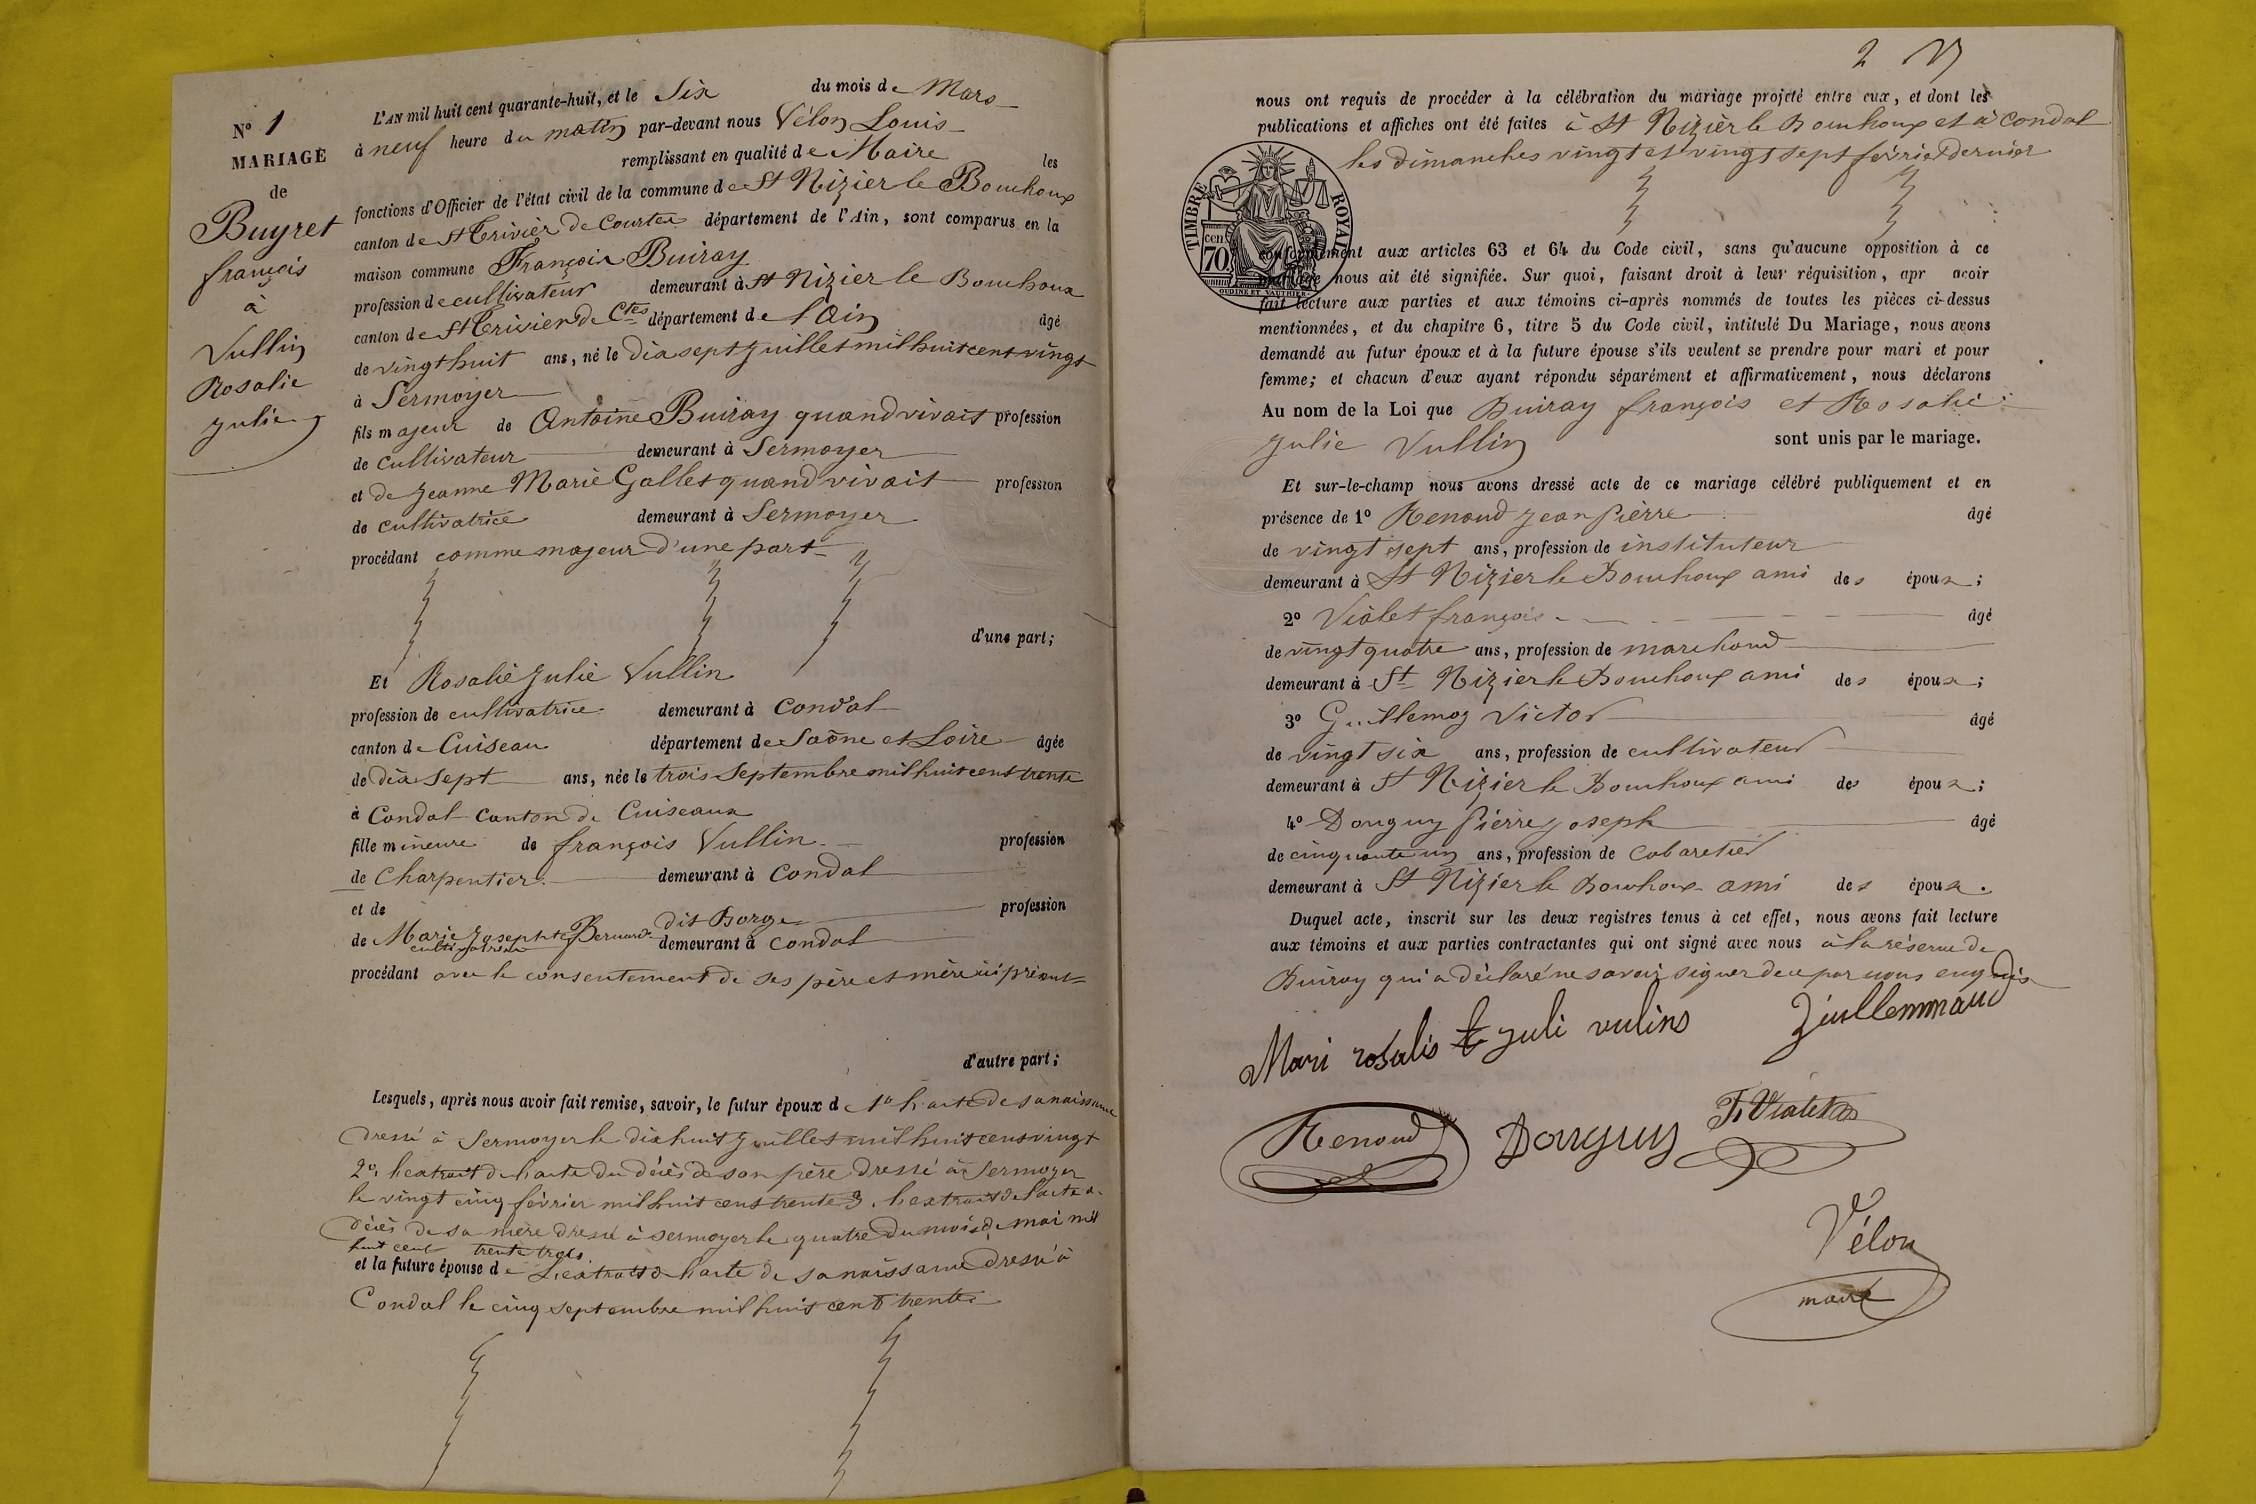 N° 1
MARIAGE
de
Buyret
françois
à
Vullin
Rosalie
Julie
L'AN mil huit cent quarante-huit, et le Six du mois de Mars
à neuf heure du matin par-devant nous Vélon Louis
remplissant en qualité de Maire les
fonctions d'Officier de l'état civil de la commune de St Nizier le Bouchoux
canton de St Trivièr de Courtes département de l'Ain, sont comparus en la
maison commune François Buiray
profession de cultivateur demeurant à St Nizier le Bouchoux
canton de St Trivier de Ctes département de l'Ain âgé
de vingt huit ans, né le dix sept juillet mil huit cent vingt
à Sermoyer
fils majeur de Antoine Buiray quand vivait profession
de cultivateur demeurant à Sermoyer
et de Jeanne Marie Gallet quand vivait profession
de cultivatrice demeurant à Sermoyer
procédant comme majeur d'une part
d'une part;
Et Rosalie Julie Vullin
profession de cultivatrice demeurant à Condal
canton de Cuiseau département de Saône et Loire âgée
de dix sept ans, née le trois Septembre mil huit cent trente
à Condal canton de Cuiseaux
fille mineure de françois Vullin profession
de Charpentier demeurant à Condal
et de profession
de Marie Josephte Bernard dit Borge
cultivatrice demeurant à Condal
procédant avec le consentement de ses père et mère ici présent
d'autre part;
Lesquels, après nous avoir fait remise, savoir, le futur époux de 1° l'acte de sa naissance
dressé à Sermoyer le dix huit juillet mil huit cent vingt
2° l'extrait de l'acte du décès de son père dressé à Sermoyer
le vingt cinq février mil huit cent trente 3. l'extrait de l'acte de
décès de sa mère dressé à Sermoyer le quatre du mois de mai mil
huit cent trente trois
et la future épouse de L'extrait de l'acte de sa naissance dressé à
Condal le cinq septembre mil huit cent trente
2
nous ont requis de procéder à la célébration du mariage projeté entre eux, et dont les
publications et affiches ont été faites à St Nizièr le Bouchoux et à Condal
les dimanches vingt et vingt sept février dernier
TIMBRE ROYAL
70 cen
OUDINE ET VAUTHIER
conformément aux articles 63 et 64 du Code civil, sans qu'aucune opposition à ce
mariage nous ait été signifiée. Sur quoi, faisant droit à leur réquisition, apr avoir
fait lecture aux parties et aux témoins ci-après nommés de toutes les pièces ci-dessus
mentionnées, et du chapitre 6, titre 5 du Code civil, intitulé Du Mariage, nous avons
demandé au futur époux et à la future épouse s'ils veulent se prendre pour mari et pour
femme; et chacun d'eux ayant répondu séparément et affirmativement, nous déclarons
Au nom de la Loi que Buiray françois et Rosalie
Julie Vullin sont unis par le mariage.
Et sur-le-champ nous avons dressé acte de ce mariage célébré publiquement et en
présence de 1° Renoud Jean Pierre âgé
de vingt sept ans, profession de instituteur
demeurant à St Nizier le Bouchoux ami des époux;
2° Violet françois âgé
de vingt quatre ans, profession de marchand
demeurant à St Nizier le Bouchoux ami des époux;
3° Guillemoz Victor âgé
de vingt six ans, profession de cultivateur
demeurant à St Nizier le Bouchoux ami des époux;
4° Douguy Pierre Joseph âgé
de cinquante un ans, profession de cabaretier
demeurant à St Nizier le Bouchoux ami des époux.
Duquel acte, inscrit sur les deux registres tenus à cet effet, nous avons fait lecture
aux témoins et aux parties contractantes qui ont signé avec nous à la réserve de
Buiray qui a déclaré ne savoir signer de ce par nous enquis
Mari rosalis juli vulins
Renoud
Douguy
F. Violet
Vélon
maire